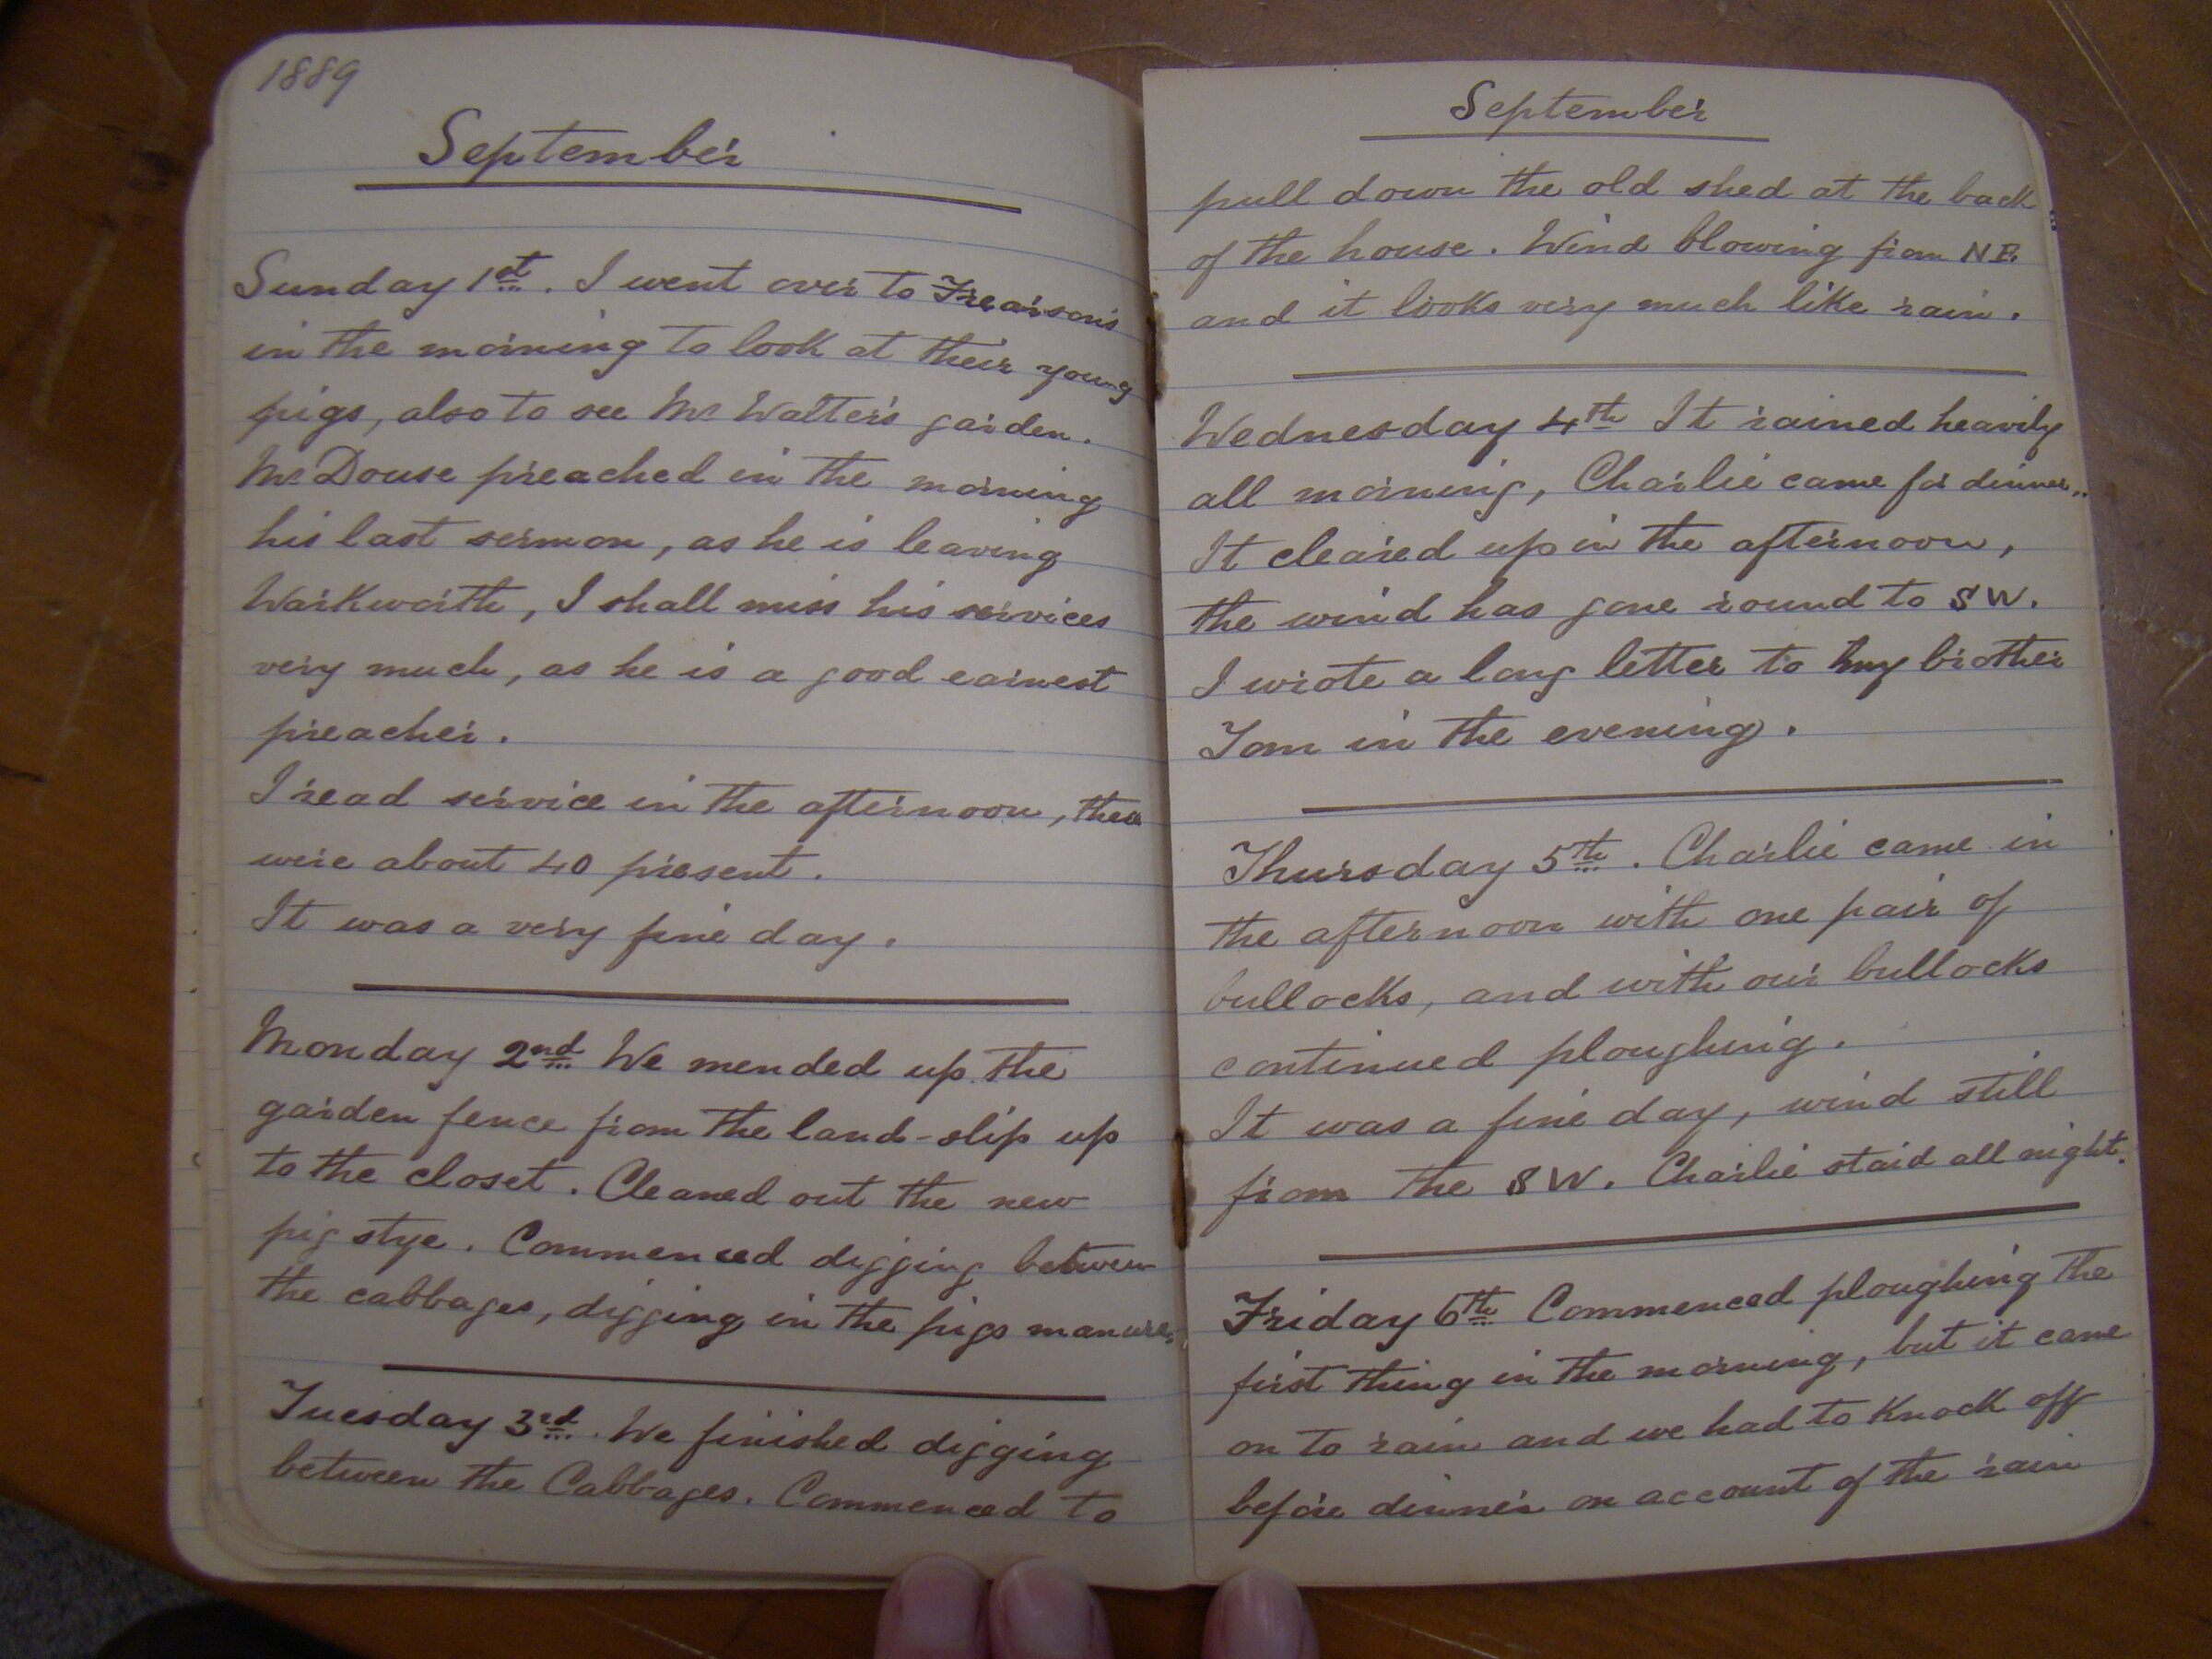 1889
September
Sunday 1st. I went over to Frearson's
in the morning to look at their young
pigs, also to see Mr Walter's garden.
Mr Douse preached in the morning
his last sermon, as he is leaving
Warkworth, I shall miss his services
very much, as he is a good earnest
preacher.
I read service in the afternoon, there
were about 40 present.
It was a very fine day.
Monday 2nd We mended up the
garden fence from the land-slip up
to the closet. Cleaned out the new
pig stye. Commenced digging between
the cabbages, digging in the pigs manure.
Tuesday 3rd. We finished digging
between the Cabbages. Commenced to
September
pull down the old shed at the back
of the house. Wind blowing from NE.
and it looks very much like rain.
Wednesday 4th It rained heavily
all morning, Charlie came for dinner.
It cleared up in the afternoon,
the wind has gone round to SW.
I wrote a long letter to my brother
Tom in the evening.
Thursday 5th. Charlie came in
the afternoon with one pair of
bullocks, and with our bullocks
continued ploughing.
It was a fine day, wind still
from the SW. Charlie staid all night.
Friday 6th Commenced ploughing the
first thing in the morning, but it came
on to rain and we had to knock off
before dinner on account of the rain